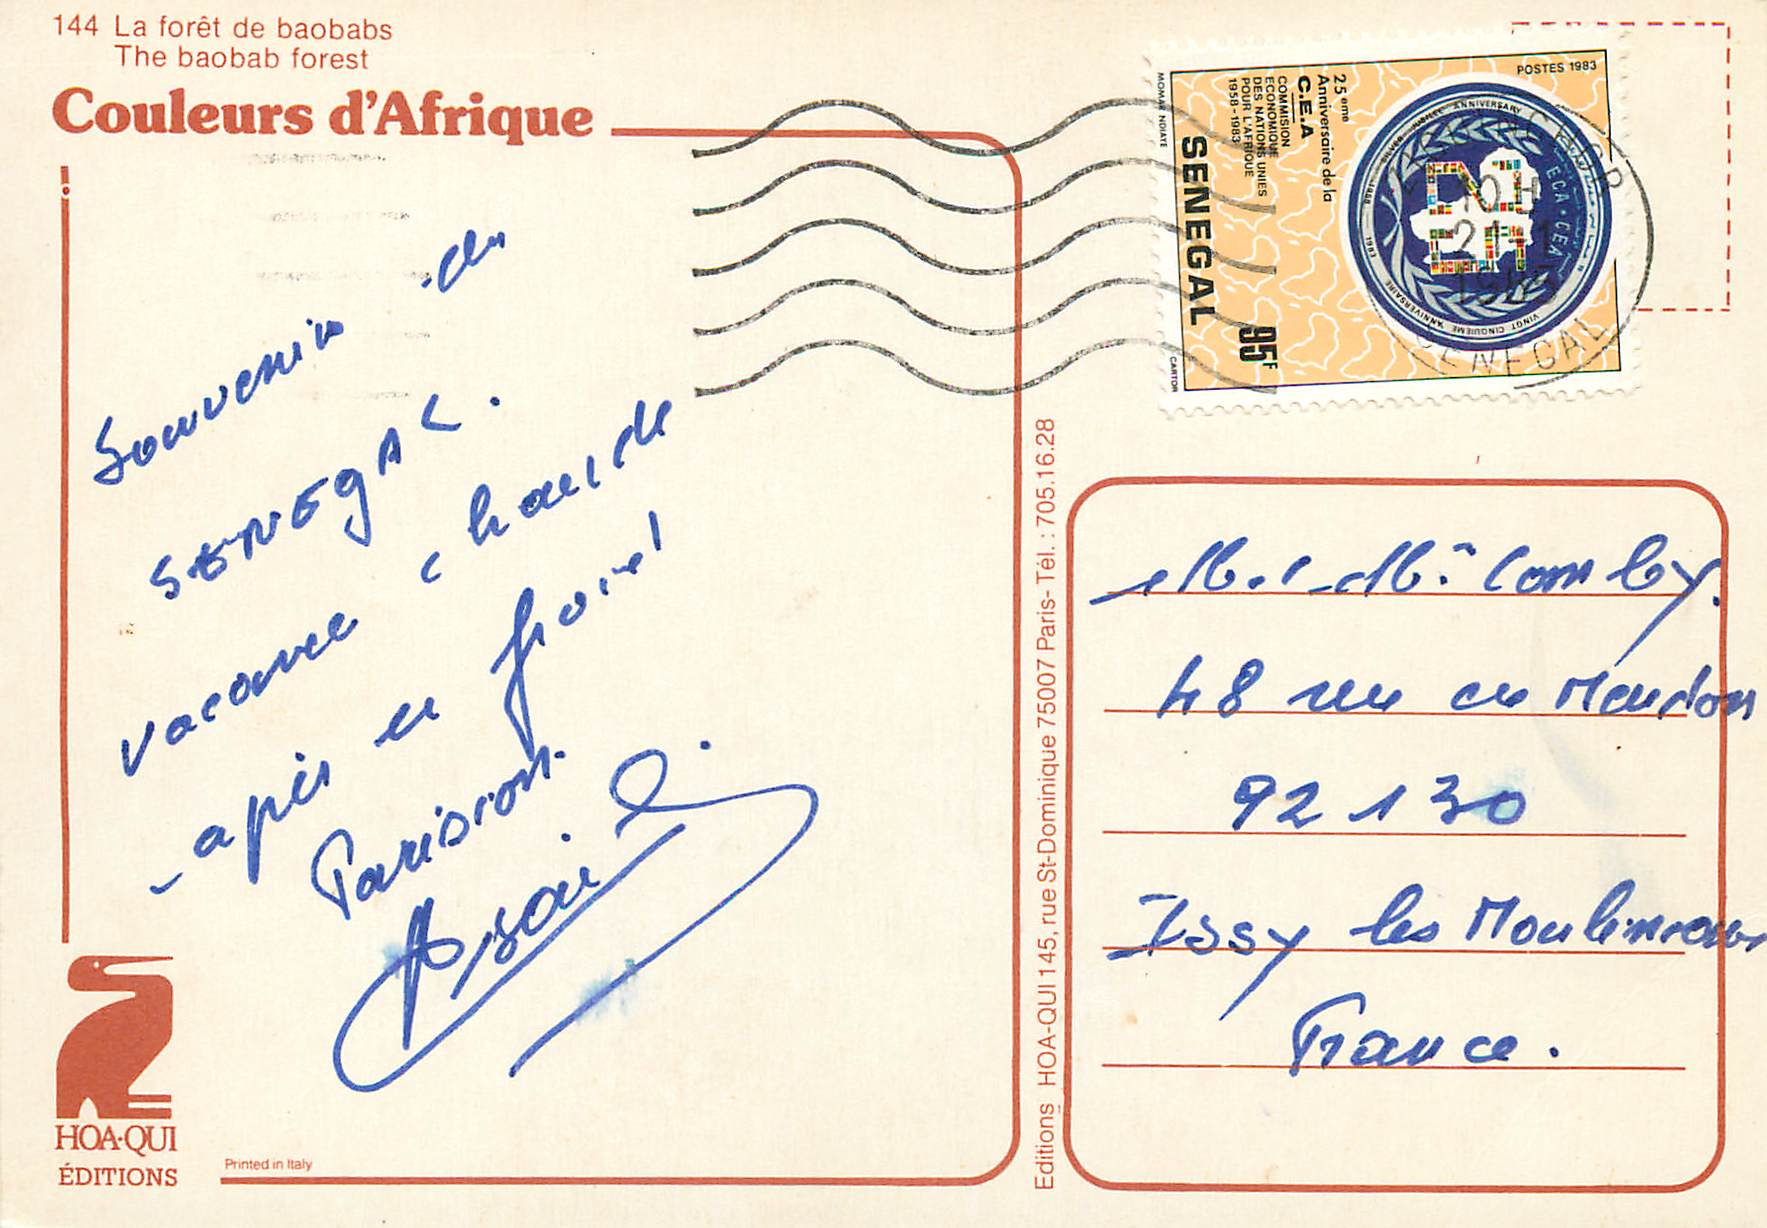 144 La forêt de baobabs
The baobab forest
Couleurs d'Afrique
Souvenir du
SENEGAL.
vacance chaude
après le froid
Parision.
HOA-QUI
ÉDITIONS
Printed in Italy
Editions HOA-QUI 145, rue St-Dominique 75007 Paris- Tél. : 705.16.28
POSTES 1983
25eme
Anniversaire de la
C.E.A
COMMISION
ECONOMIQUE
DES NATIONS UNIES
POUR L'AFRIQUE
1958-1983
MOMAR NDIAYE
SENEGAL
95F
CARTOR
SILVER JUBILEE ANNIVERSARY
ECA·CEA
VINGT CINQUIEME ANNIVERSAIRE
1958
1983
10H
21-1
SENEGAL
M. et Me Comby.
48 rue de Meudon
92130
Issy les Moulineaux
France.